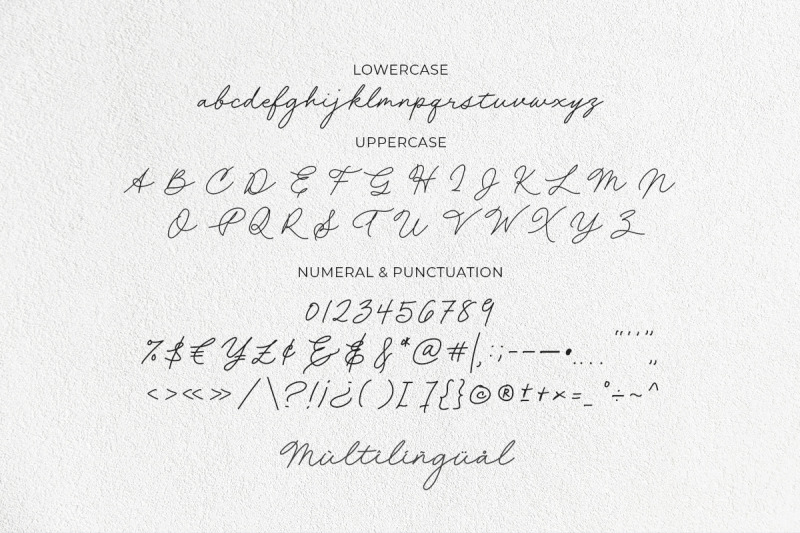 LOWERCASE
abcdefghijklmnpqrstuvwxyz
UPPERCASE
A B C D E F G H I J K L M N
O P Q R S T U V W X Y Z
NUMERAL & PUNCTUATION
0123456789
%$€ ¥£¢ & &*@#|,:;-–—•....
<>«»/\?!¡¿()[]{}©®±+×=_°÷~^
Mültilíngüàl